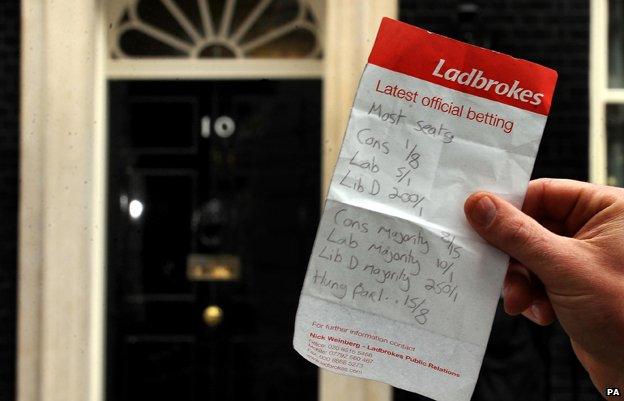 10
Ladbrokes
Latest official betting
Most seats
Cons 1/8
Lab 5/1
Lib D 200/1
Cons majority 2/5
Lab majority 10/1
Lib D majority 250/1
Hung Parl.. 15/8
For further information contact
Nick Weinberg - Ladbrokes Public Relations
PA